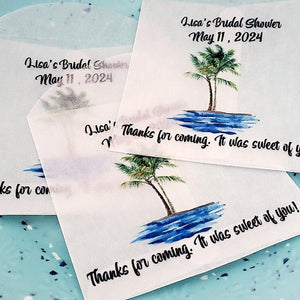 Lisa's Bridal Shower
May 11, 2024
Lisa's Bridal Shower
May 11, 2024
Thanks for coming. It was sweet of you!
Lisa's Bridal Shower
May 11, 2024
Thanks for coming. It was sweet of you!
Thanks for